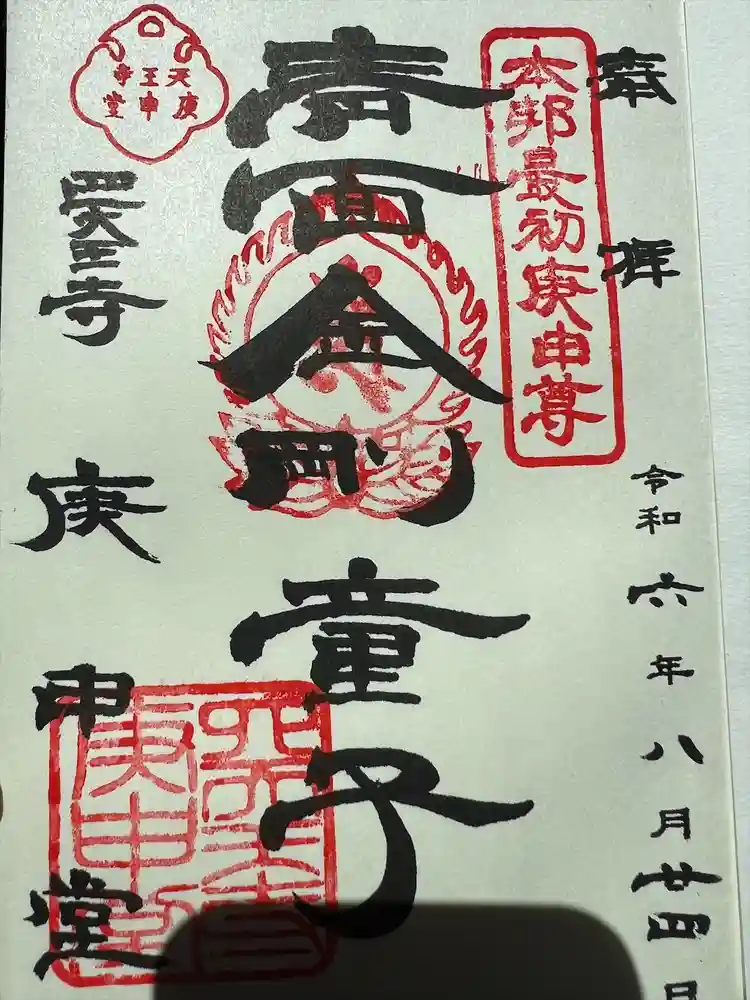 奉拝
令和六年八月廿四日
本邦最初庚申尊
青面金剛童子
四天王寺
庚申堂
天王寺
庚申堂